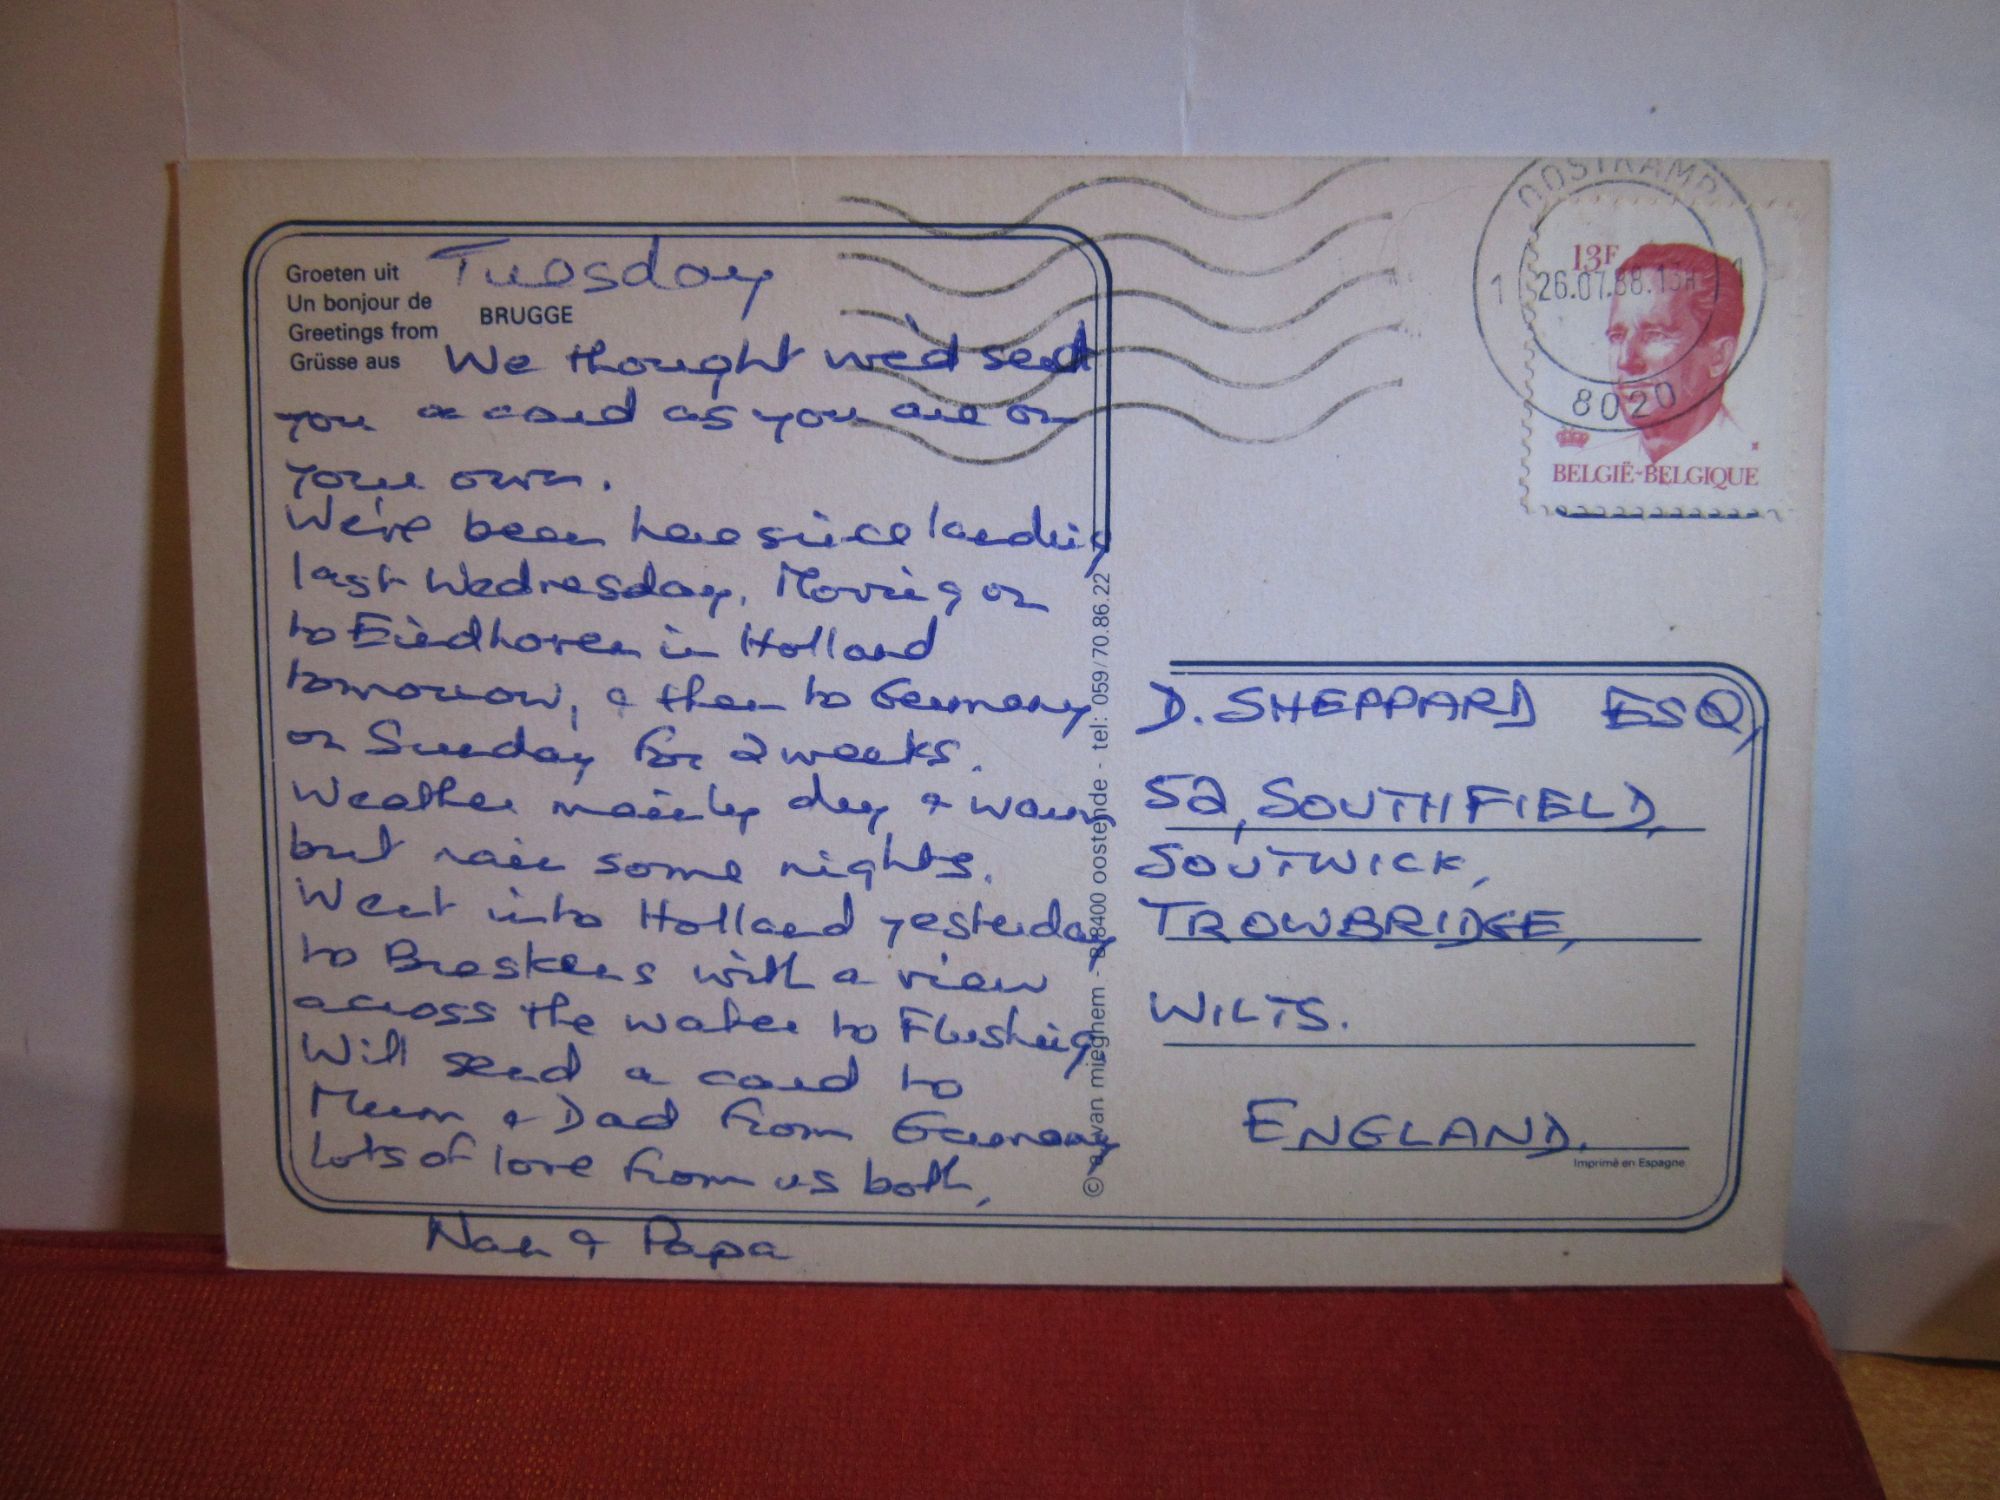 Groeten uit
Un bonjour de
Greetings from
Grüsse aus
BRUGGE
Tuesday
We thought we'd send
you a card as you are on
your own.
We've been here since landing
last Wednesday, Moving on
to Eindhoven in Holland
tomorrow, & then to Germany
on Sunday for 2 weeks.
Weather mainly dry & warm
but rain some nights.
Went into Holland yesterday
to Breskens with a view
across the water to Flushing
Will send a card to
Mum & Dad from Germany
Lots of love from us both,
Nan & Papa
© a. van mieghem - B 8400 oostende - tel: 059/70.86.22
OOSTKAMP
1 26.07.88.13H 1
8020
13F
BELGIË-BELGIQUE
D. SHEPPARD ESQ,
52, SOUTHFIELD,
SOUTWICK,
TROWBRIDGE,
WILTS.
ENGLAND.
Imprimé en Espagne